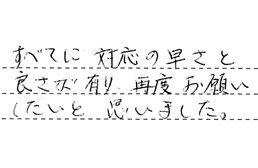 すべてに 対応の早さと
良さが有り、再度お願い
したいと 思いました。